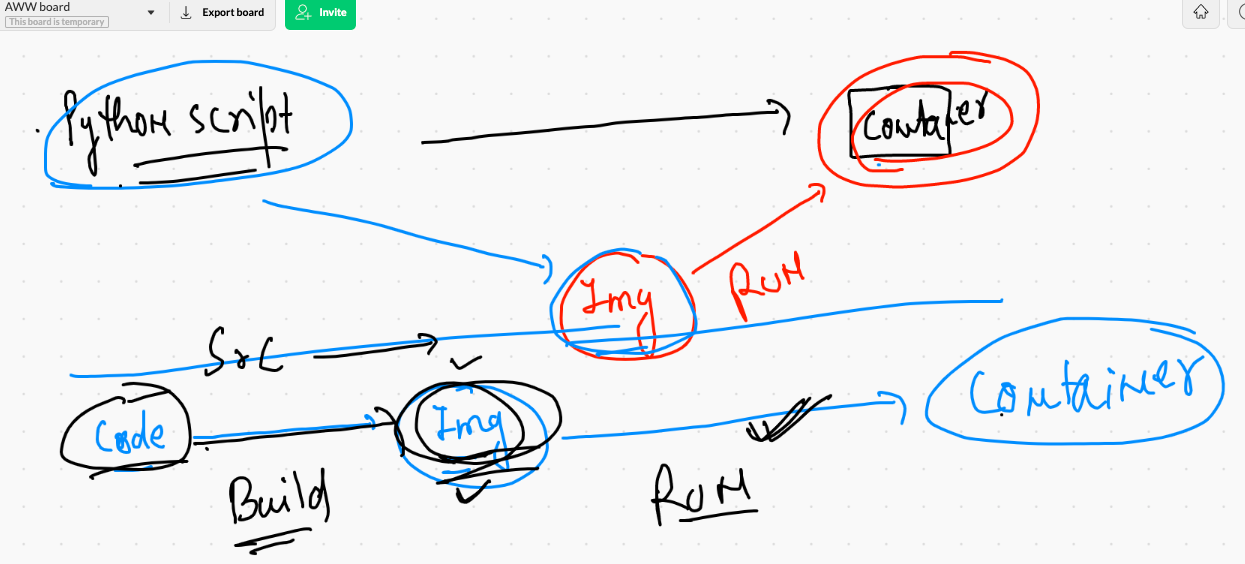 AWW board
This board is temporary
Export board
Invite
Python script
Container
Img
RUN
Src
Code
Img
Container
Build
RUN